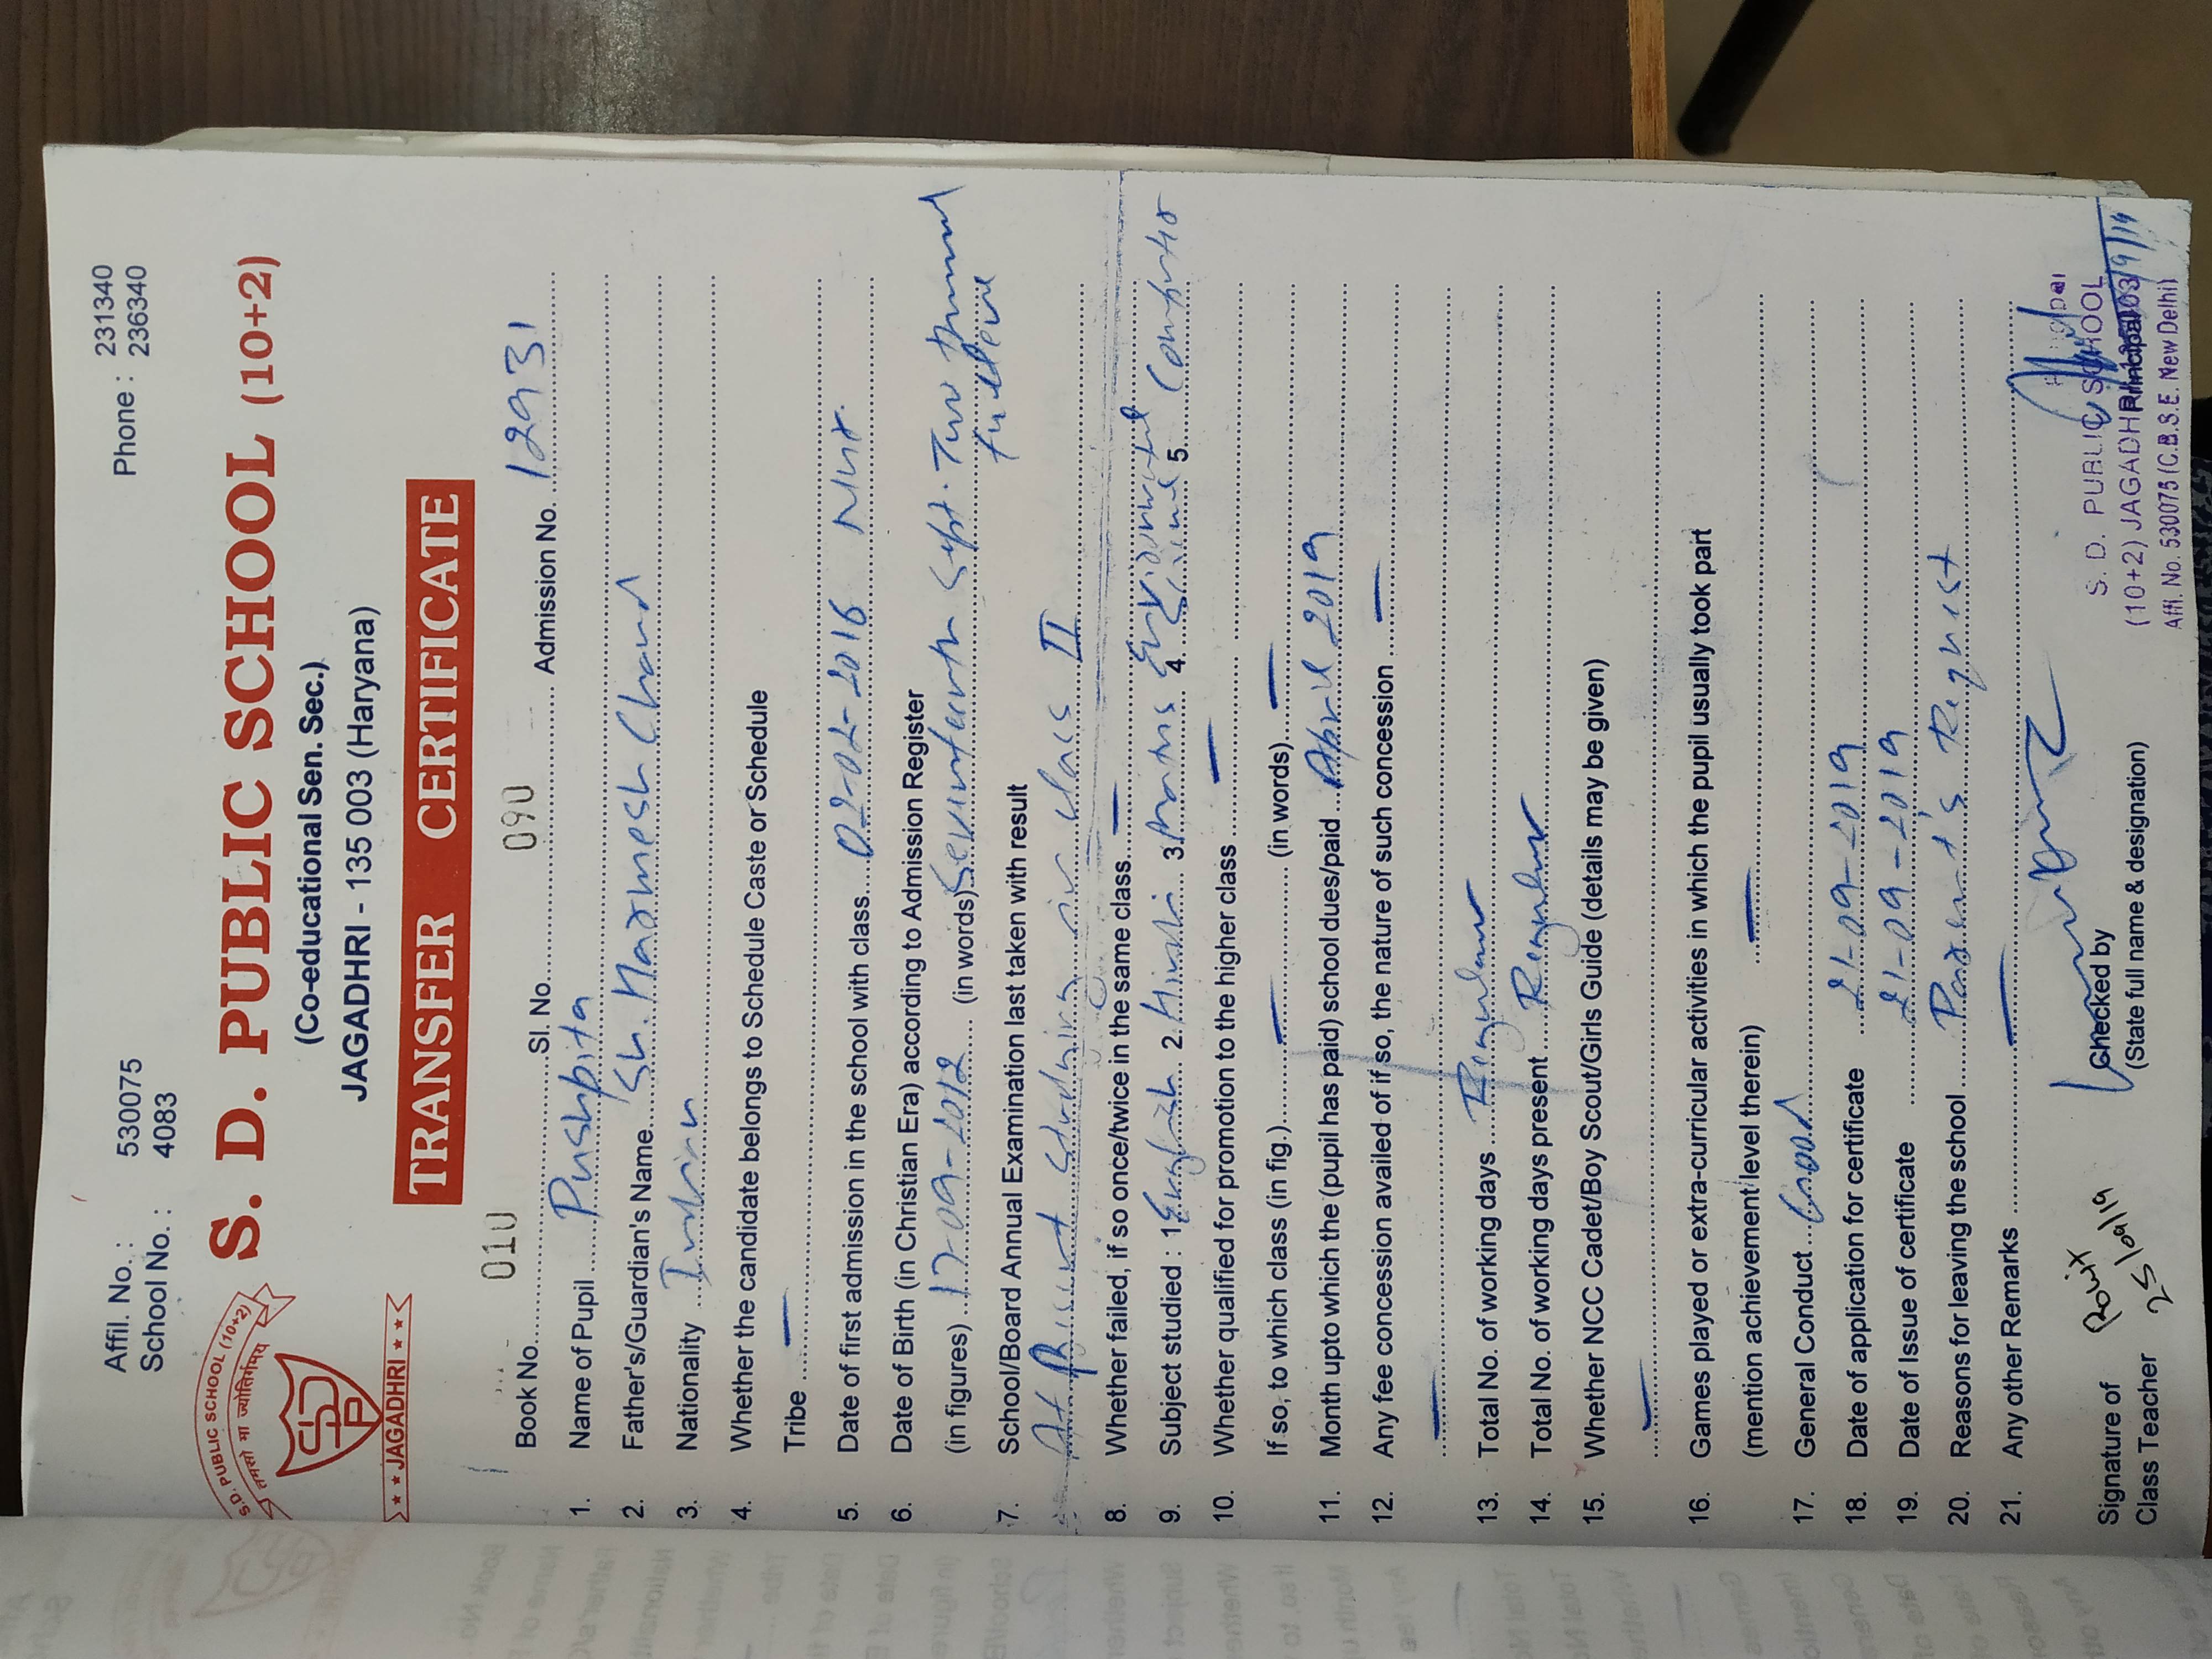 Affil. No. : 530075 Phone : 231340
School No. : 4083 236340
S.D. PUBLIC SCHOOL (10+2)
तमसो मा ज्योतिर्गमय
SD
P
★ ★ JAGADHRI ★ ★
S. D. PUBLIC SCHOOL (10+2)
(Co-educational Sen. Sec.)
JAGADHRI - 135 003 (Haryana)
TRANSFER CERTIFICATE
Book No. 010 Sl. No. 090 Admission No. 12931
1. Name of Pupil Pushpita
2. Father's/Guardian's Name Sh. Narmesh Chand
3. Nationality Indian
4. Whether the candidate belongs to Schedule Caste or Schedule
Tribe —
5. Date of first admission in the school with class 02-02-2016 Nur.
6. Date of Birth (in Christian Era) according to Admission Register
(in figures) 17-09-2012 (in words) Seventeenth Sept. Two thousand
twelve
7. School/Board Annual Examination last taken with result
At Present studying in class II
8. Whether failed, if so once/twice in the same class —
9. Subject studied : 1 English 2. Hindi 3 Maths 4. Environmental Science 5. Computer
10. Whether qualified for promotion to the higher class —
If so, to which class (in fig.) — (in words) —
11. Month upto which the (pupil has paid) school dues/paid April 2019
12. Any fee concession availed of if so, the nature of such concession —
—
13. Total No. of working days Regular
14. Total No. of working days present Regular
15. Whether NCC Cadet/Boy Scout/Girls Guide (details may be given)
—
16. Games played or extra-curricular activities in which the pupil usually took part
(mention achievement level therein) —
17. General Conduct Good
18. Date of application for certificate 21-09-2019
19. Date of Issue of certificate 21-09-2019
20. Reasons for leaving the school Parent's Request
21. Any other Remarks —
Signature of
Class Teacher
25/09/19
Checked by
(State full name & designation)
Principal
S. D. PUBLIC SCHOOL
(10+2) JAGADHRI
Affl. No. 530075 (C.B.S.E. New Delhi)